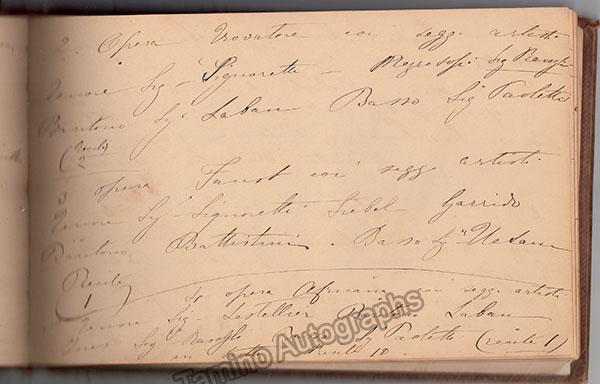 2. Opera Trovatore coi segg. artisti
Tenore Sig. Signoretti - Mezzosop. Sig. Ravogli
Baritono Sig. Laban Basso Sig. Paoletti
(recite
2
3 opera Faust coi segg. artisti
Tenore Sig. Signoretti Siebel Garrido
Baritono Battistini. Basso Sig. Uetam
Recite
(1
4 opera Africana coi segg. artisti
Tenore Sig. Lestellier Baritono Laban
Ines Sig. Ravogli Basso Sig. Paoletti (recite 1)
in tutto Recite 10.
Tamino Autographs